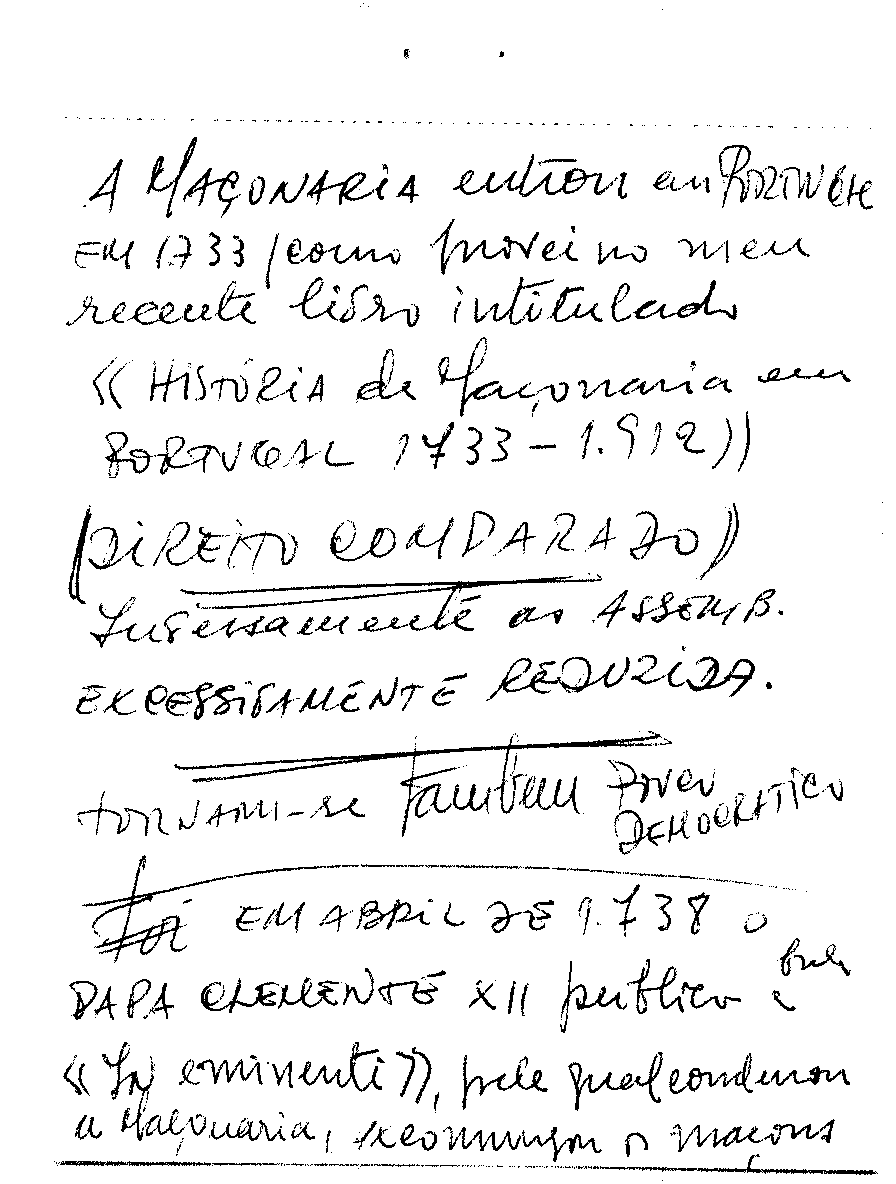 A MAÇONARIA entrou em PORTUGAL
EM 1733 / como provei no meu
recente livro intitulado
« HISTÓRIA da Maçonaria em
PORTUGAL 1733 - 1.912 »
(DIREITO COMPARADO)
Inversamente as ASSEMB.
EXCESSIVAMENTE REDUZIDA.
TORNAM-se também POUCO
DEMOCRATICO
Foi EM ABRIL DE 1.738 o
PAPA CLEMENTE XII publica a bula
« In eminenti », pela qual condenou
a Maçonaria, excomungou os maçons